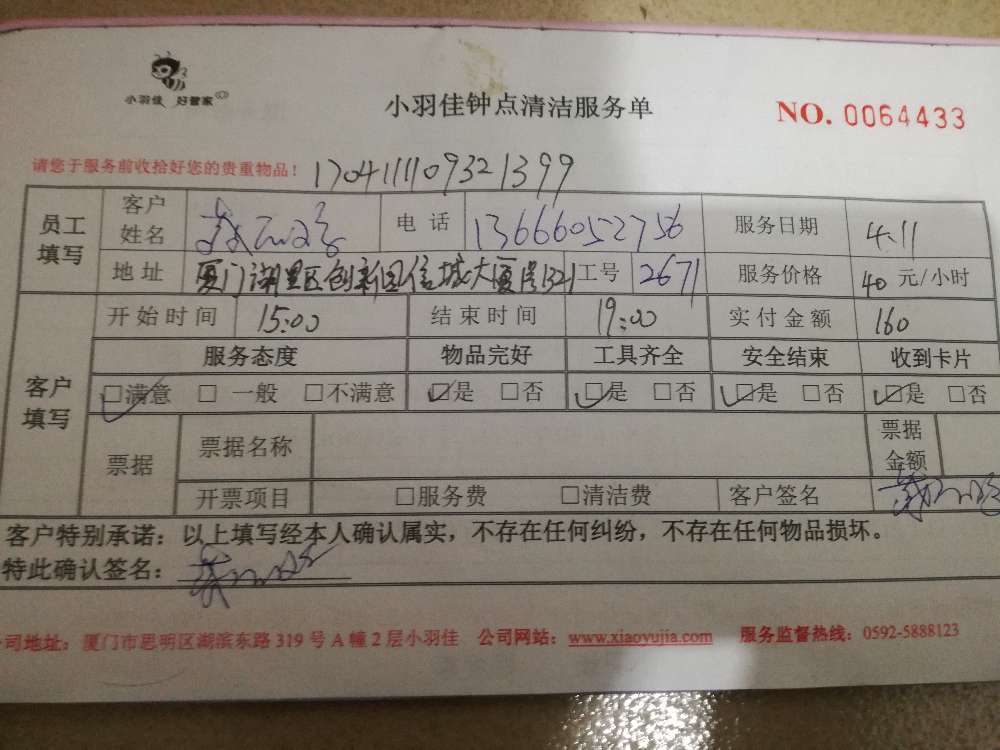 小羽佳 好管家
小羽佳钟点清洁服务单
NO. 0064433
请您于服务前收拾好您的贵重物品！ 1704111109321399
员工填写 客户姓名 电话 13666052756 服务日期 4.11
地址 厦门湖里区创新园信城大厦 1321 工号 2671 服务价格 40 元/小时
开始时间 15:00 结束时间 19:00 实付金额 160
客户填写 服务态度 物品完好 工具齐全 安全结束 收到卡片
☑满意 □一般 □不满意 ☑是 □否 ☑是 □否 ☑是 □否 ☑是 □否
票据 票据名称 票据金额
开票项目 □服务费 □清洁费 客户签名
客户特别承诺：以上填写经本人确认属实，不存在任何纠纷，不存在任何物品损坏。
特此确认签名：
司地址：厦门市思明区湖滨东路 319 号 A 幢 2 层小羽佳 公司网站：www.xiaoyujia.com 服务监督热线：0592-5888123